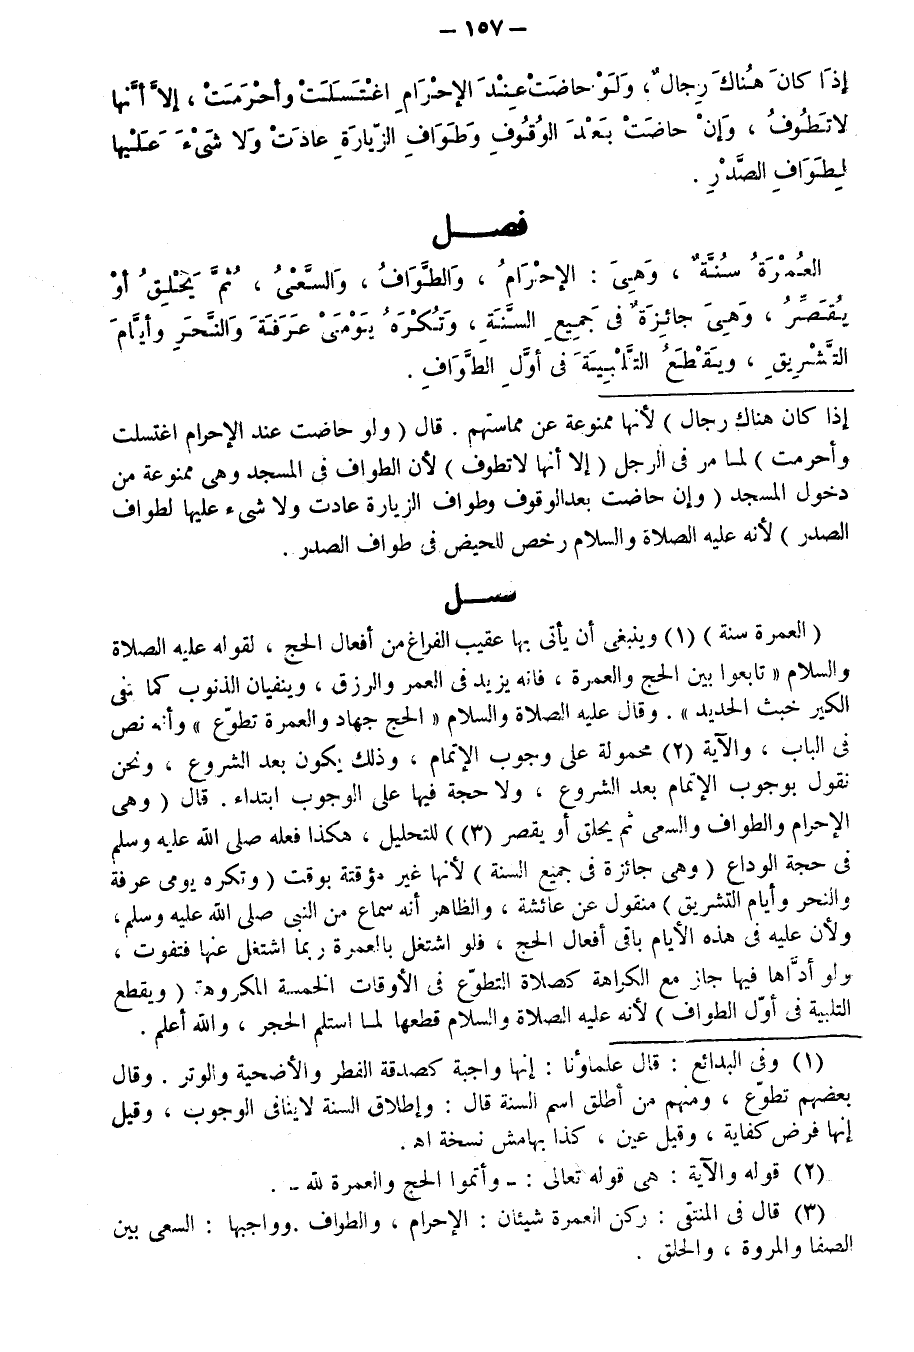 — ١٥٧ —
إذَا كانَ هُناكَ رِجالٌ ، وَلَوْ حاضَتْ عِنْدَ الإحْرَامِ اغْتَسَلَتْ وأحْرَمَتْ ، إلاَّ أنَّها
لاتَطُوفُ ، وَإنْ حاضَتْ بَعْدَ الوُقُوفِ وَطَوَافِ الزّيارَةِ عادَتْ وَلا شَىْءَ عَلَيْها
لِطَوَافِ الصَّدْرِ .
فصل
العُمْرَةُ سُنَّةٌ ، وَهِىَ : الإحْرَامُ ، وَالطَّوَافُ ، وَالسَّعْىُ ، ثُمَّ يَحْلِقُ أوْ
يُقَصِّرُ ، وَهِىَ جائِزَةٌ فى جَمِيعِ السَّنَةِ ، وَتُكْرَهُ يَوْمَىْ عَرَفَةَ وَالنَّحْرِ وأيَّامَ
التَّشْرِيقِ ، ويَقْطَعُ التَّلْبِيَةَ فى أوَّلِ الطَّوَافِ .
إذا كان هناك رجال ) لأنها ممنوعة عن مماستهم . قال ( ولو حاضت عند الإحرام اغتسلت
وأحرمت ) لما مر فى الرجل ( إلا أنها لاتطوف ) لأن الطواف فى المسجد وهى ممنوعة من
دخول المسجد ( وإن حاضت بعدالوقوف وطواف الزيارة عادت ولا شىء عليها لطواف
الصدر ) لأنه عليه الصلاة والسلام رخص للحيض فى طواف الصدر .
( العمرة سنة ) (١) وينبغى أن يأتى بها عقيب الفراغ من أفعال الحج ، لقوله عليه الصلاة
والسلام « تابعوا بين الحج والعمرة ، فانه يزيد فى العمر والرزق ، وينفيان الذنوب كما ينفى
الكير خبث الحديد » . وقال عليه الصلاة والسلام « الحج جهاد والعمرة تطوّع » وأنه نص
فى الباب ، والآية (٢) محمولة على وجوب الإتمام ، وذلك يكون بعد الشروع ، ونحن
نقول بوجوب الإتمام بعد الشروع ، ولا حجة فيها على الوجوب ابتداء . قال ( وهى
الإحرام والطواف والسعى ثم يحلق أو يقصر (٣) ) للتحليل ، هكذا فعله صلى الله عليه وسلم
فى حجة الوداع ( وهى جائزة فى جميع السنة ) لأنها غير مؤقتة بوقت ( وتكره يومى عرفة
والنحر وأيام التشريق ) منقول عن عائشة ، والظاهر أنه سماع من النبى صلى الله عليه وسلم ،
ولأن عليه فى هذه الأيام باقى أفعال الحج ، فلو اشتغل بالعمرة ربما اشتغل عنها فتفوت ،
ولو أدَّاها فيها جاز مع الكراهة كصلاة التطوّع فى الأوقات الخمسة المكروهة ( ويقطع
التلبية فى أوّل الطواف ) لأنه عليه الصلاة والسلام قطعها لما استلم الحجر ، والله أعلم .
(١) وفى البدائع : قال علماؤنا : إنها واجبة كصدقة الفطر والأضحية والوتر . وقال
بعضهم تطوّع ، ومنهم من أطلق اسم السنة قال : وإطلاق السنة لاينافى الوجوب ، وقيل
إنها فرض كفاية ، وقيل عين ، كذا بهامش نسخة اه .
(٢) قوله والآية : هى قوله تعالى : ـ وأتموا الحج والعمرة لله ـ .
(٣) قال فى المنتقى : ركن العمرة شيئان : الإحرام ، والطواف . وواجبها : السعى بين
الصفا والمروة ، والحلق .